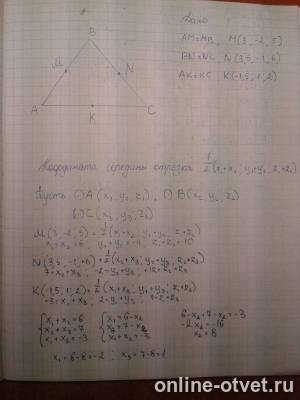 B
Дано
AM=MB, M(3, -2, 5)
M
N
BN=NC, N(3,5, -1, 6)
AK=KC, K(-1,5, 1, 2)
A
K
C
Координата середины отрезка 1/2(x₁+x₂; y₁+y₂, z₁+z₂)
Пусть () A (x₁, y₁, z₁), () B(x₂, y₂, z₂)
() C(x₃, y₃, z₃)
M(3, -2, 5) = 1/2(x₁+x₂, y₁+y₂, z₁+z₂)
x₁+x₂=6; y₁+y₂=-4; z₁+z₂=10
N(3,5, -1, 6) = 1/2(x₂+x₃; y₂+y₃; z₂+z₃)
7=x₂+x₃; -2=y₂+y₃; 12=z₂+z₃
K(-1,5, 1; 2) = 1/2(x₁+x₃, y₁+y₃; z₁+z₃)
-3=x₁+x₃; 2=y₁+y₃; 4=z₁+z₃
x₁+x₂=6 x₁=6-x₂ 6-x₂+7-x₂=-3
x₂+x₃=7 x₃=7-x₂ -2x₂=-16
x₁+x₃=-3 x₁+x₃=-3 x₂=8
x₁=6-8=-2; x₃=7-8=1
online-otvet.ru